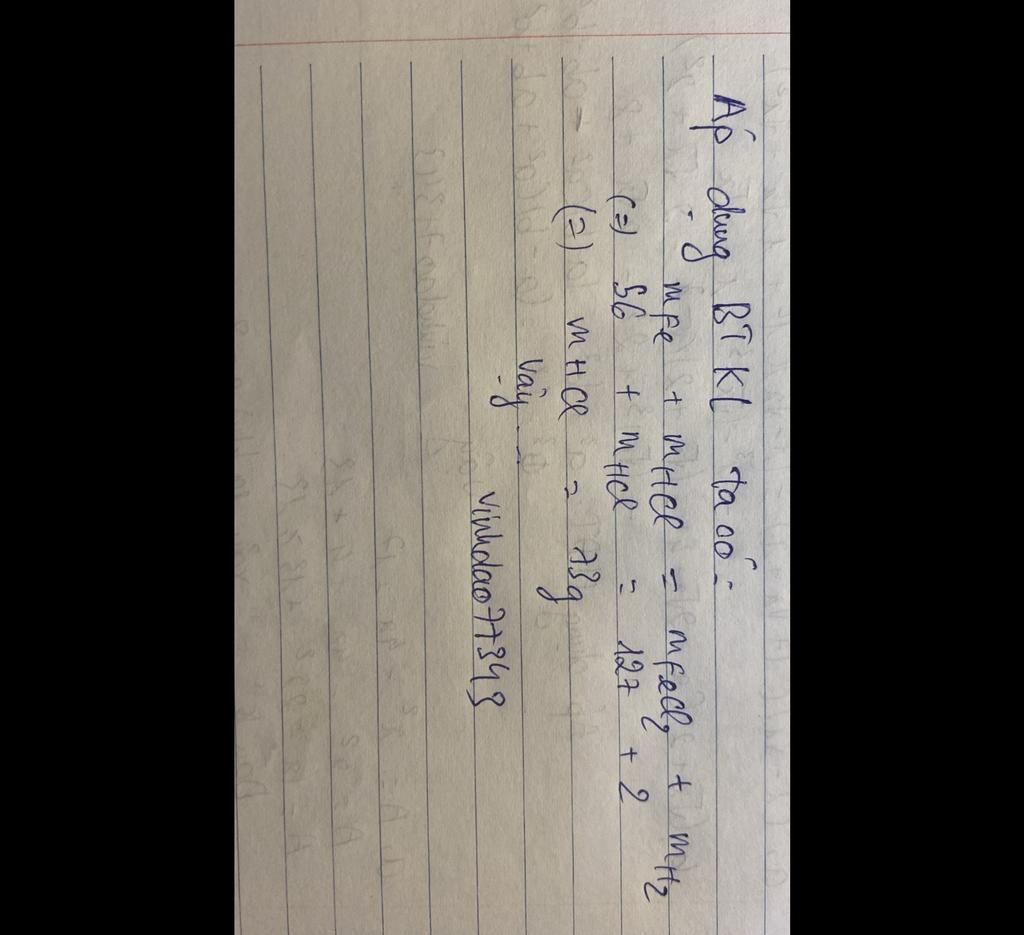 Áp dụng BTKL ta có:
mFe + mHCl = mFeCl2 + mH2
(=) 56 + mHCl = 127 + 2
(=) mHCl = 73g
Vậy...
vinhdao77349